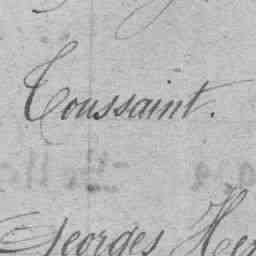 Toussaint.
Georges